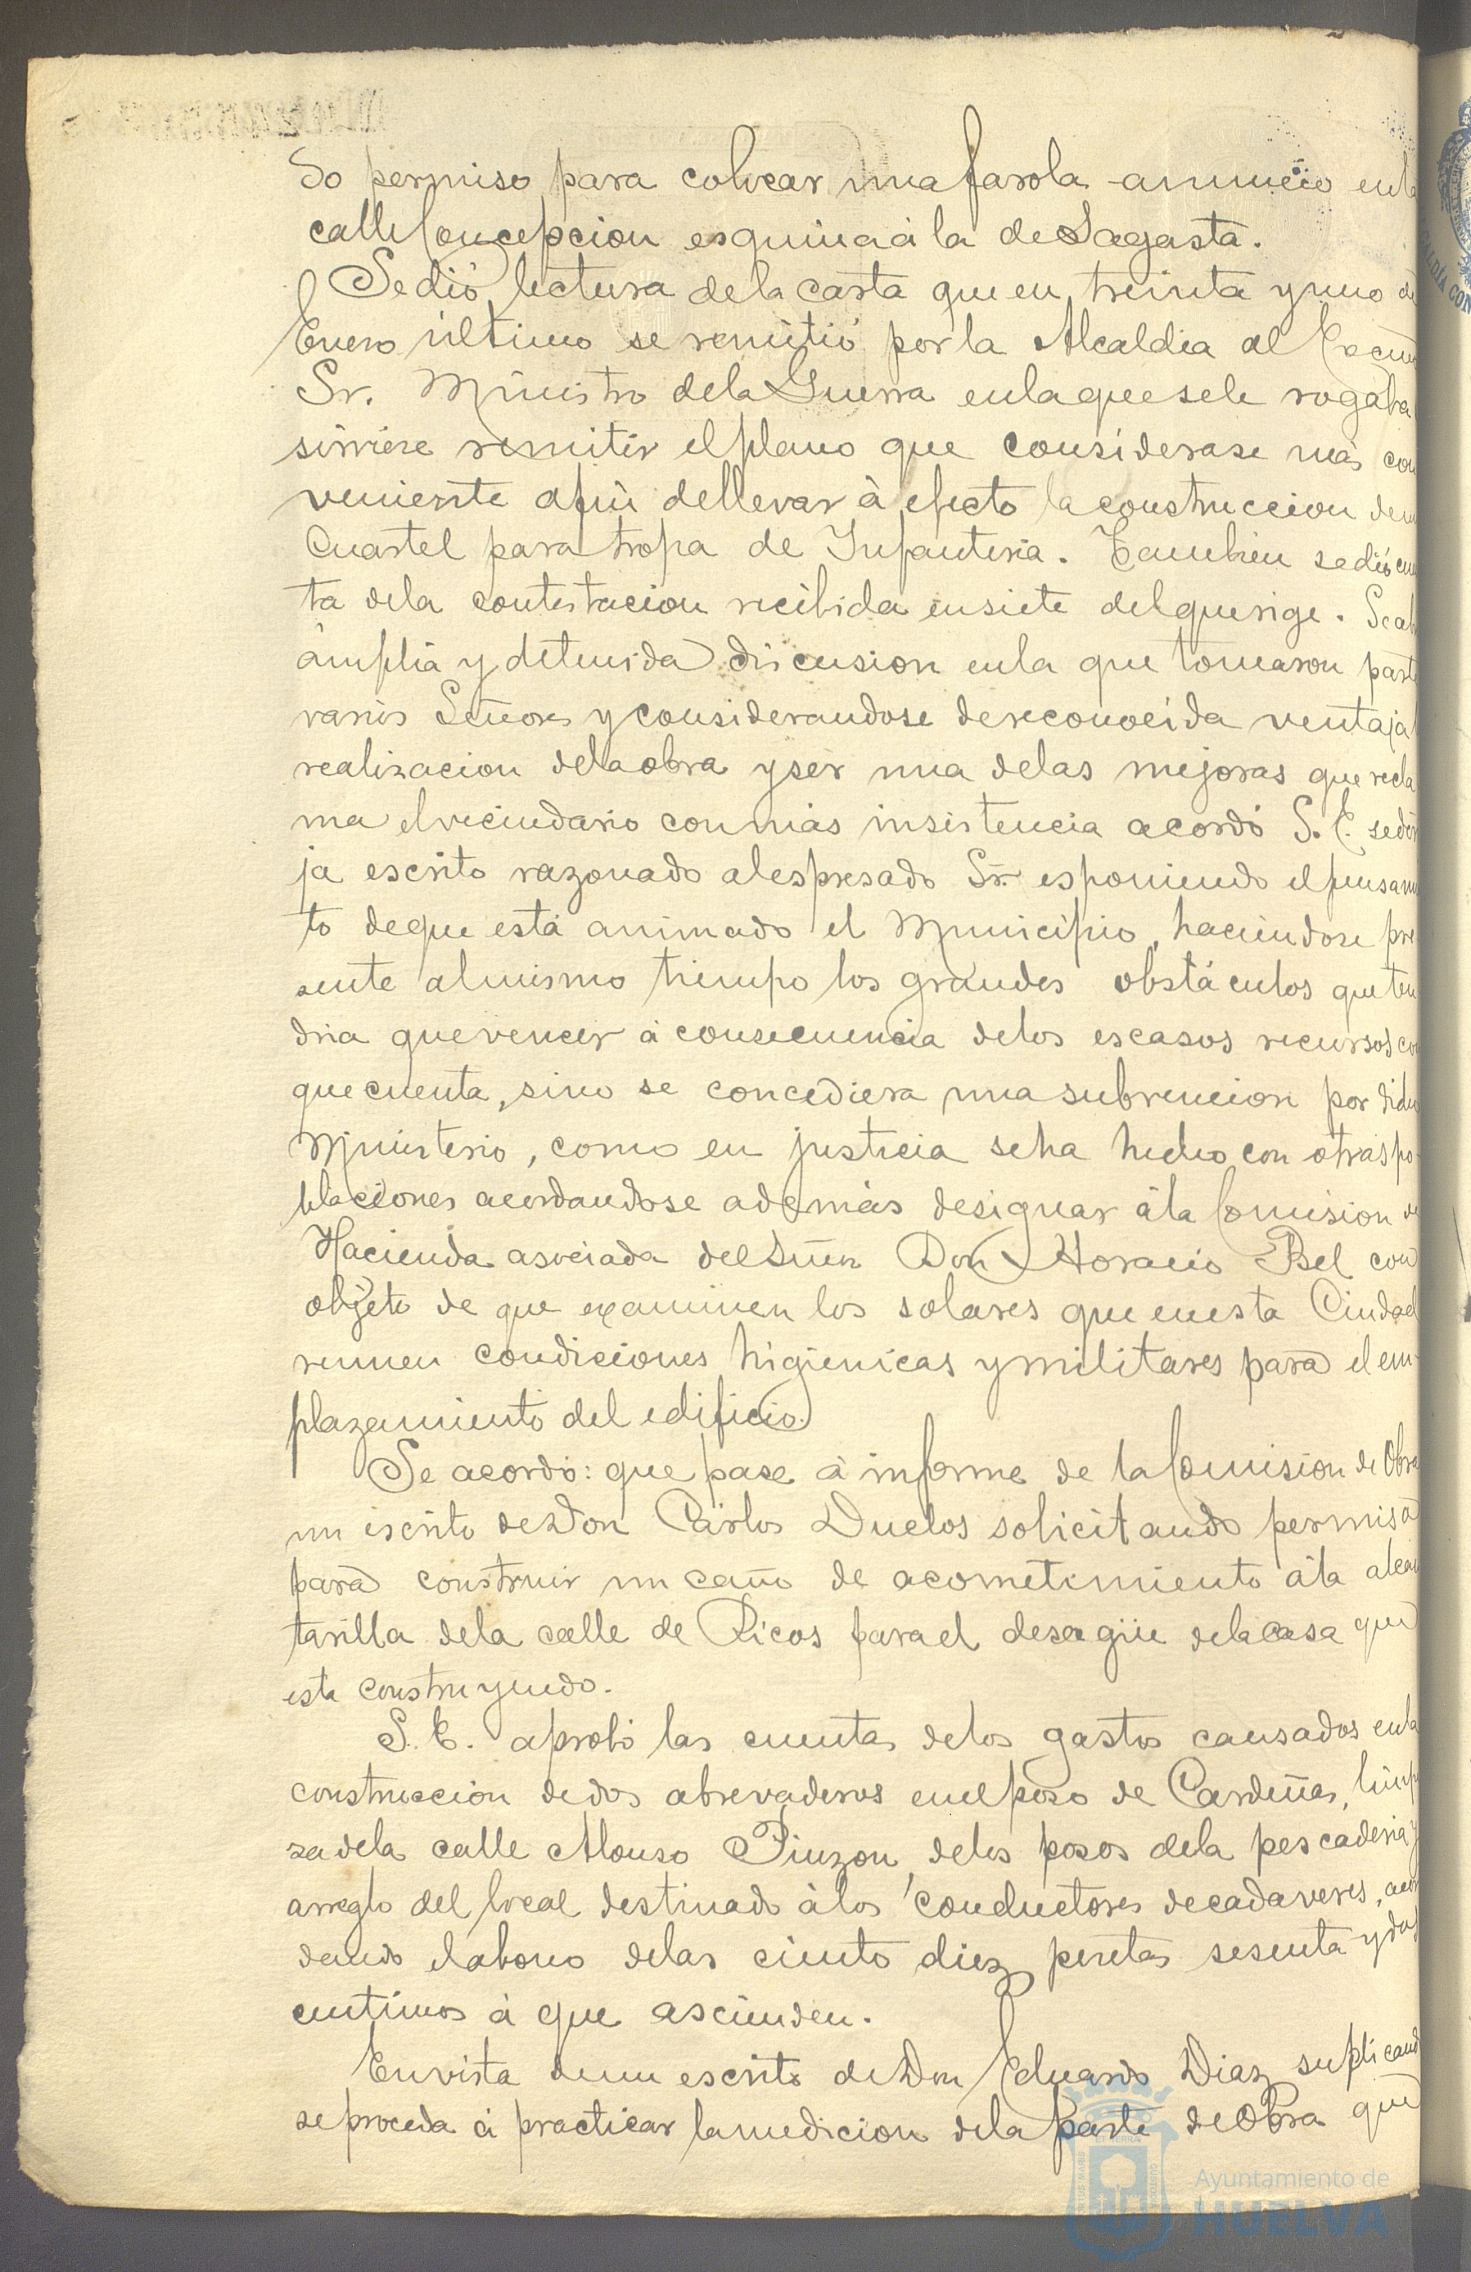 do permiso para colocar una farola-anuncio en la
calle Concepcion esquina á la de Sagasta.
Se dió lectura de la carta que en treinta y uno de
Enero último se remitió por la Alcaldia al Excmo
Sr. Ministro de la Guerra en la que se le rogaba
sirviese remitir el plano que considerase más con
veniente a fin de llevar á efecto la construccion de un
Cuartel para tropa de Infanteria. Tambien se dió cuen
ta de la contestacion recibida en siete del que rige. Se abr
ámplia y detenida discusion en la que tomaron parte
varios Señores y considerandose de reconocida ventaja
realizacion de la obra y ser una de las mejoras que recla
ma el vecindario con más insistencia acordó S. E. se diri
ja escrito razonado al espresado Sr. esponiendo el pensamien
to de que está animado el Municipio, haciendose pre
sente al mismo tiempo los grandes obstáculos que ten
dria que vencer á consecuencia de los escasos recursos con
que cuenta, sino se concediera una subvencion por dicho
Ministerio, como en justicia se ha hecho con otras po-
blaciones acordandose además designar á la Comision de
Hacienda asociada del Señor Don Horacio Bel con
objeto de que examinen los solares que en esta Ciudad
reunen condiciones higienicas y militares para el em-
plazamiento del edificio.
Se acordó: que pase á informe de la Comision de Obra
un escrito de Don Cárlos Duclos solicitando permiso
para construir un caño de acometimiento á la alcan
tarilla de la calle de Ricos para el desagüe de la casa que
está construyendo.
S. E. aprobó las cuentas de los gastos causados en la
construccion de dos abrevaderos en el pozo de Cardeñas, limpi
za de la calle Alonso Pinzon, de los pozos de la pescaderia y
arreglo del local destinado á los conductores de cadaveres, acor
dando el abono de las ciento diez pesetas sesenta y dos
centimos á que ascienden.
En vista de un escrito de Don Eduardo Diaz suplicand
se proceda á practicar la medicion de la parte de obra que
Ayuntamiento de
HUELVA